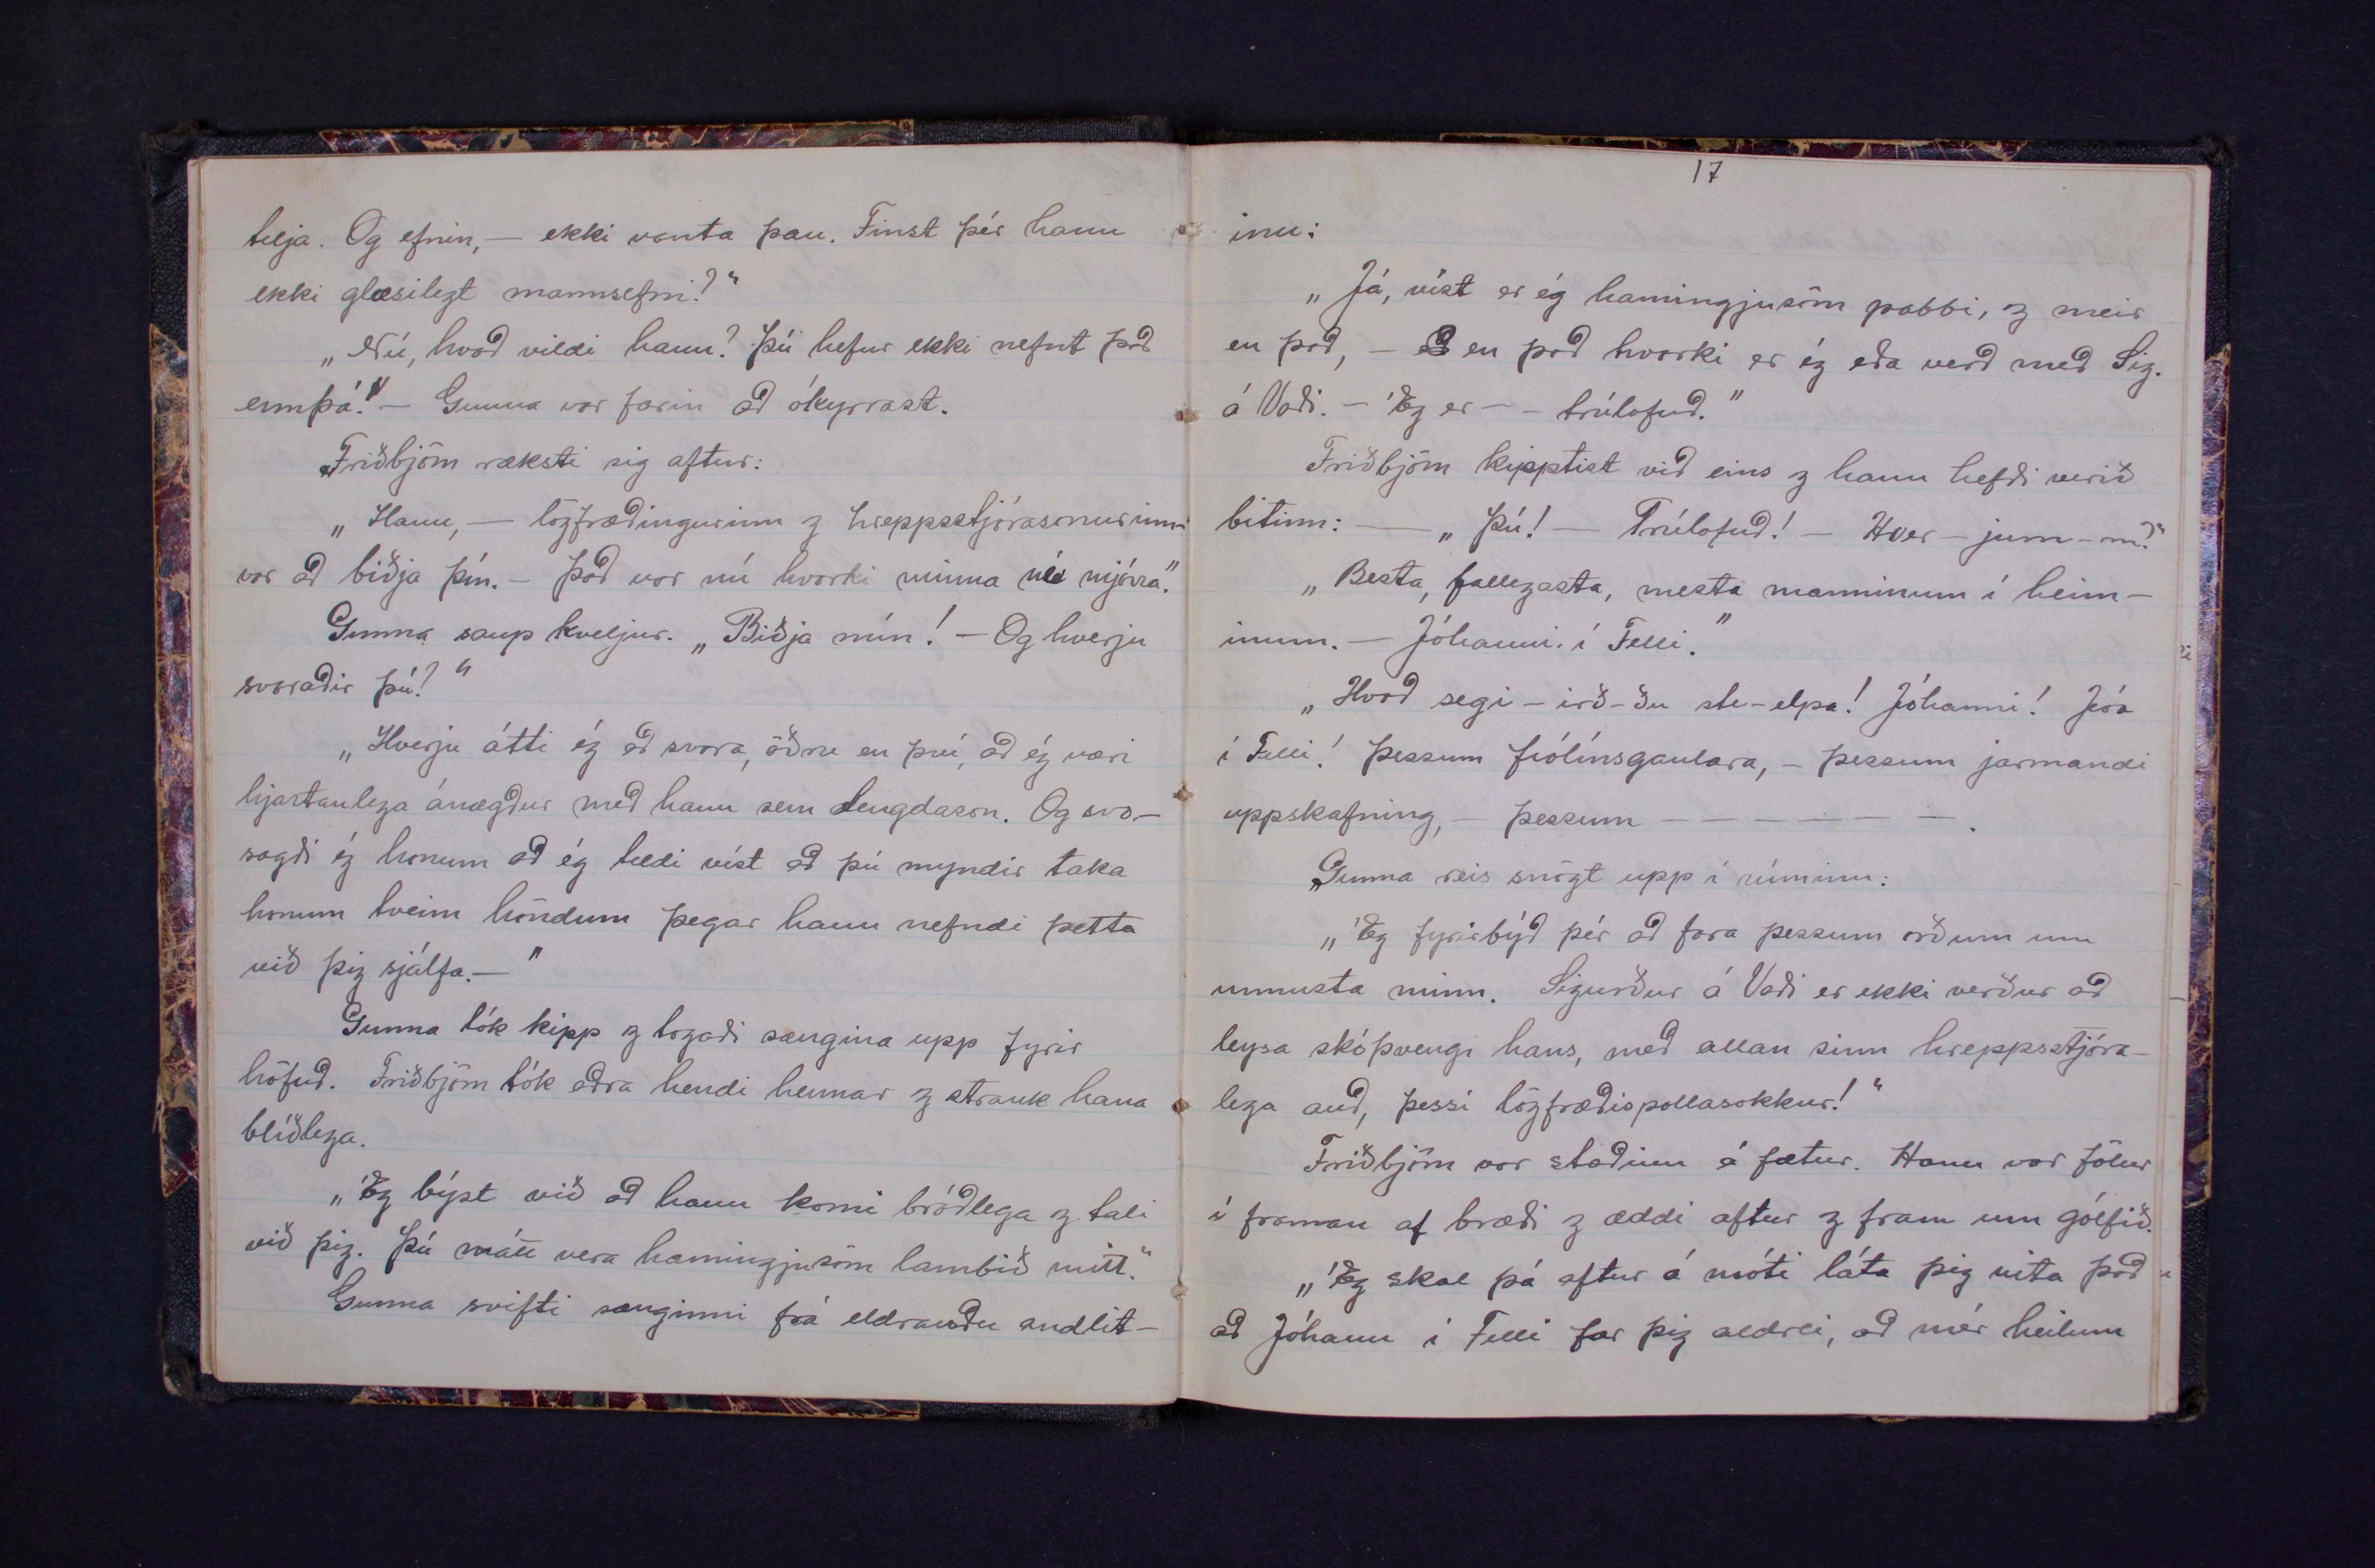 telja. Og efnin, — ekki vanta þau. Finst þér hann
ekki glæsilegt mannsefni?"
„Nú, hvað vildi hann? Þú hefur ekki nefnt það
ennþá!" — Gunna var farin að ókyrrast.
Friðbjörn ræksti sig aftur:
„Hann, — lögfræðingurinn og hreppsstjórasonurinn
var að biðja þín. — Það var nú hvorki minna né mjórra."
Gunna saup hveljur. „Biðja mín! — Og hverju
svaraðir þú?"
„Hverju átti ég að svara, öðru en því, að ég væri
hjartanlega ánægður með hann sem tengdason. Og svo —
sagði ég honum að ég teldi víst að þú myndir taka
honum tveim höndum þegar hann nefndi þetta
við þig sjálfa. — "
Gunna tók kipp og togaði sængina upp fyrir
höfuð. Friðbjörn tók aðra hendi hennar og strauk hana
blíðlega.
„Ég býst við að hann komi bráðlega og tali
við þig. Þú mátt vera hamingjusöm lambið mitt."
Gunna svifti sænginni frá eldrauðu andlit-
17
inu:
„Já, víst er ég hamingjusöm pabbi, og meir
en það, — en það hvorki er ég eða verð með Sig.
á Vaði. — Ég er — — trúlofuð."
Friðbjörn kipptist við eins og hann hefði verið
bitinn: — „Þú! — Trúlofuð! — Hver-jum-m?"
„Besta, fallegasta, mesta manninum í heim-
inum. — Jóhanni í Felli."
„Hvað segi-irð-ðu ste-elpa! Jóhanni! Jóa
í Felli! Þessum fíólínsgaulara, — þessum jarmandi
uppskafning, — þessum — — — — — — .
Gunna reis snögt upp í rúminu:
„Ég fyrirbýð þér að fara þessum orðum um
unnusta minn. Sigurður á Vaði er ekki verður að
leysa skóþvengi hans, með allan sinn hreppsstjóra-
lega auð, þessi lögfræðispollasokkur!"
Friðbjörn var staðinn á fætur. Hann var fölur
í framan af bræði og æddi aftur og fram um gólfið.
„Ég skal þá aftur á móti láta þig vita það
að Jóhann í Felli fær þig aldrei, að mér heilum